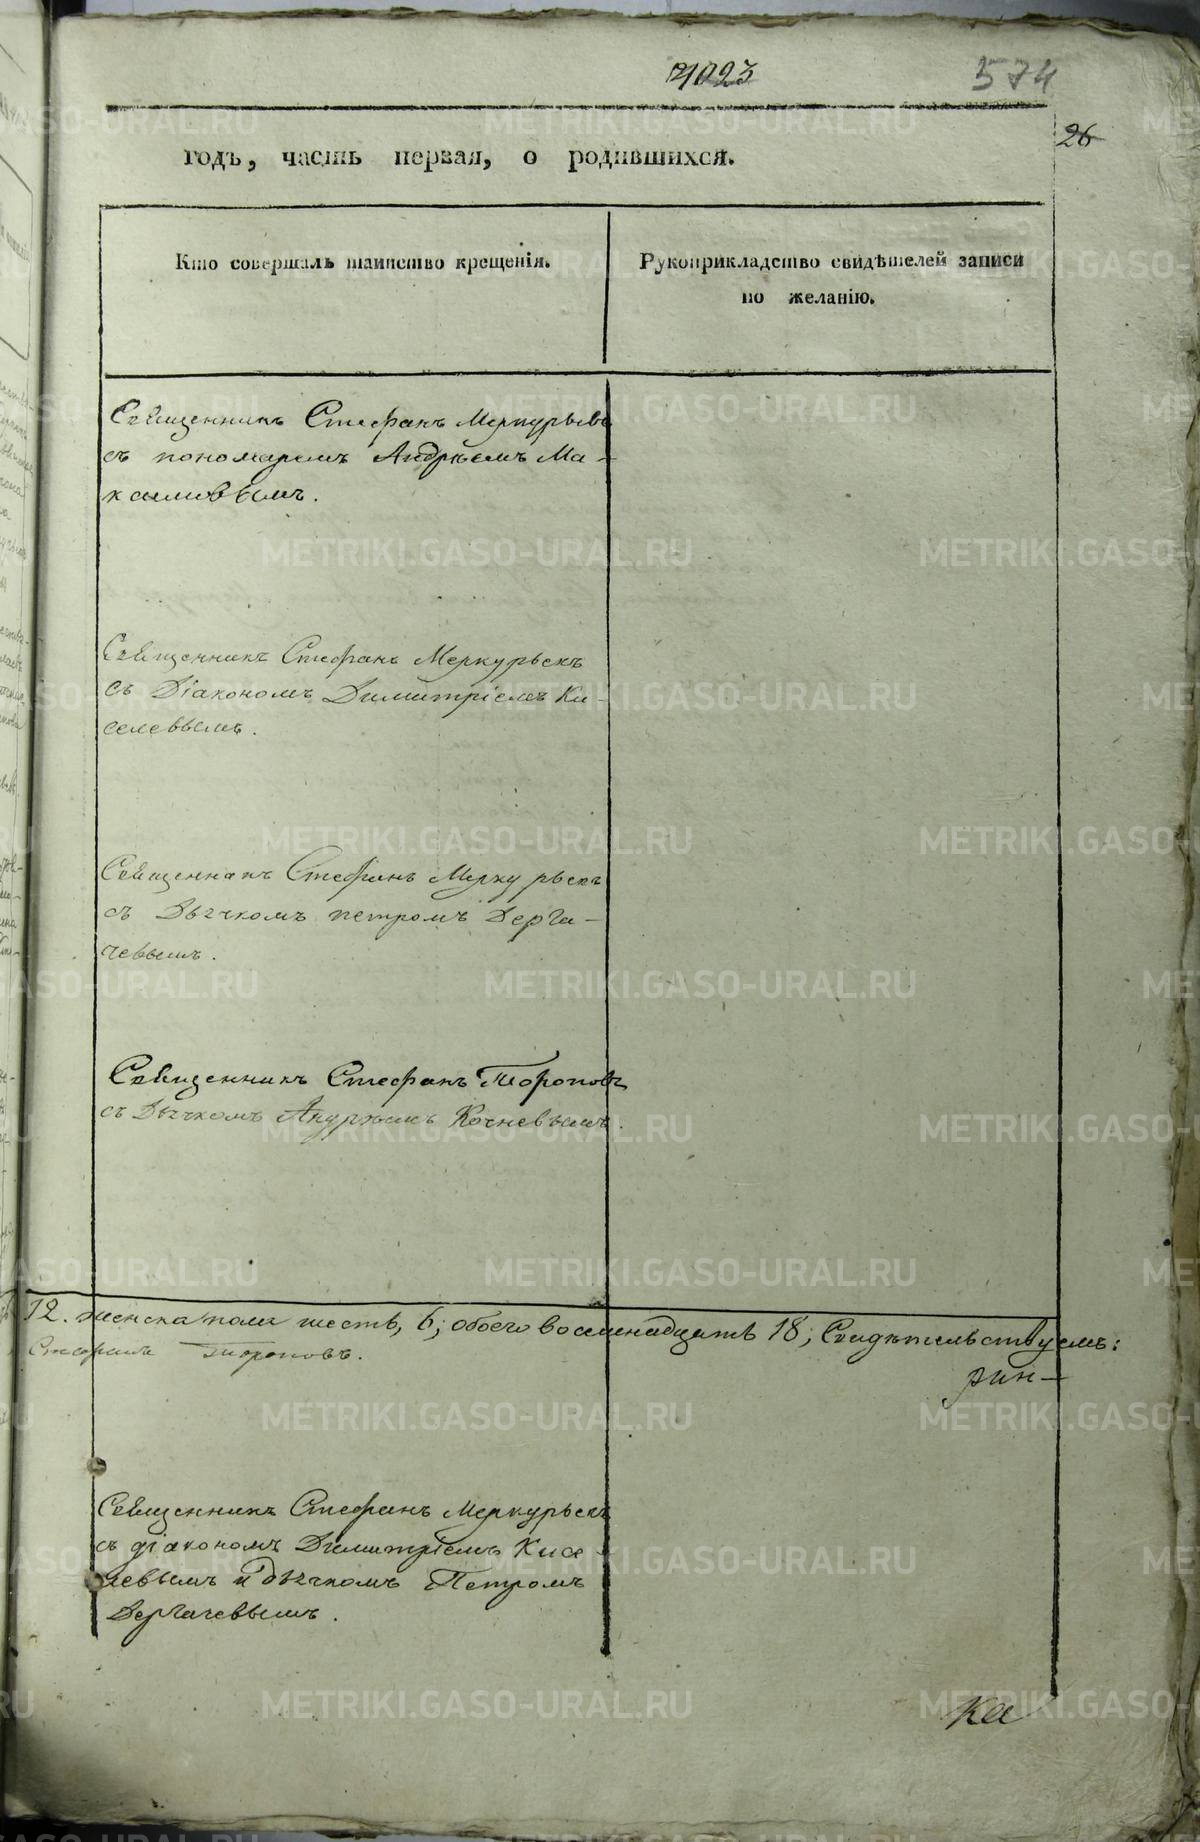 1023
574
26
годъ, часть первая, о родившихся.
Кто совершалъ таинство крещенія.
Рукоприкладство свидѣтелей записи
по желанію.
Священникъ Стефанъ Меркурьевъ
съ пономаремъ Андреемъ Ма-
ксимовымъ.
Священникъ Стефанъ Меркурьевъ
съ Діакономъ Димитріемъ Ки-
селевымъ.
Священникъ Стефанъ Меркурьевъ
съ Дьячкомъ петромъ Дерга-
чевымъ.
Священникъ Стефанъ Тороповъ
съ Дьячкомъ Кочневымъ.
12. женска пола шесть, 6; обоего восемнадцать 18; Свидѣтельствуемъ:
Стефанъ Тороповъ.
рин-
Священникъ Стефанъ Меркурьевъ
съ діакономъ Димитріемъ Кисе-
левымъ и дьячкомъ Петромъ
Дергачевымъ.
ка
METRIKI.GASO-URAL.RU